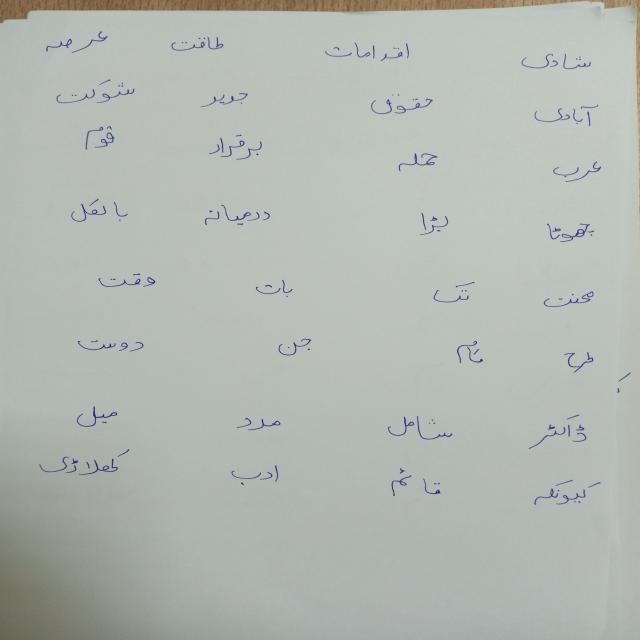 شادی اقدامات طاقت عرصہ
آبادی حقوق جدید شوکت
عرب حملہ برقرار قوم
چھوٹا بڑا درمیانہ بالکل
محنت تک بات وقت
طرح تمام جن دوست
ڈاکٹر شامل مدد میل
کیونکہ قائم ادب کھلاڑی